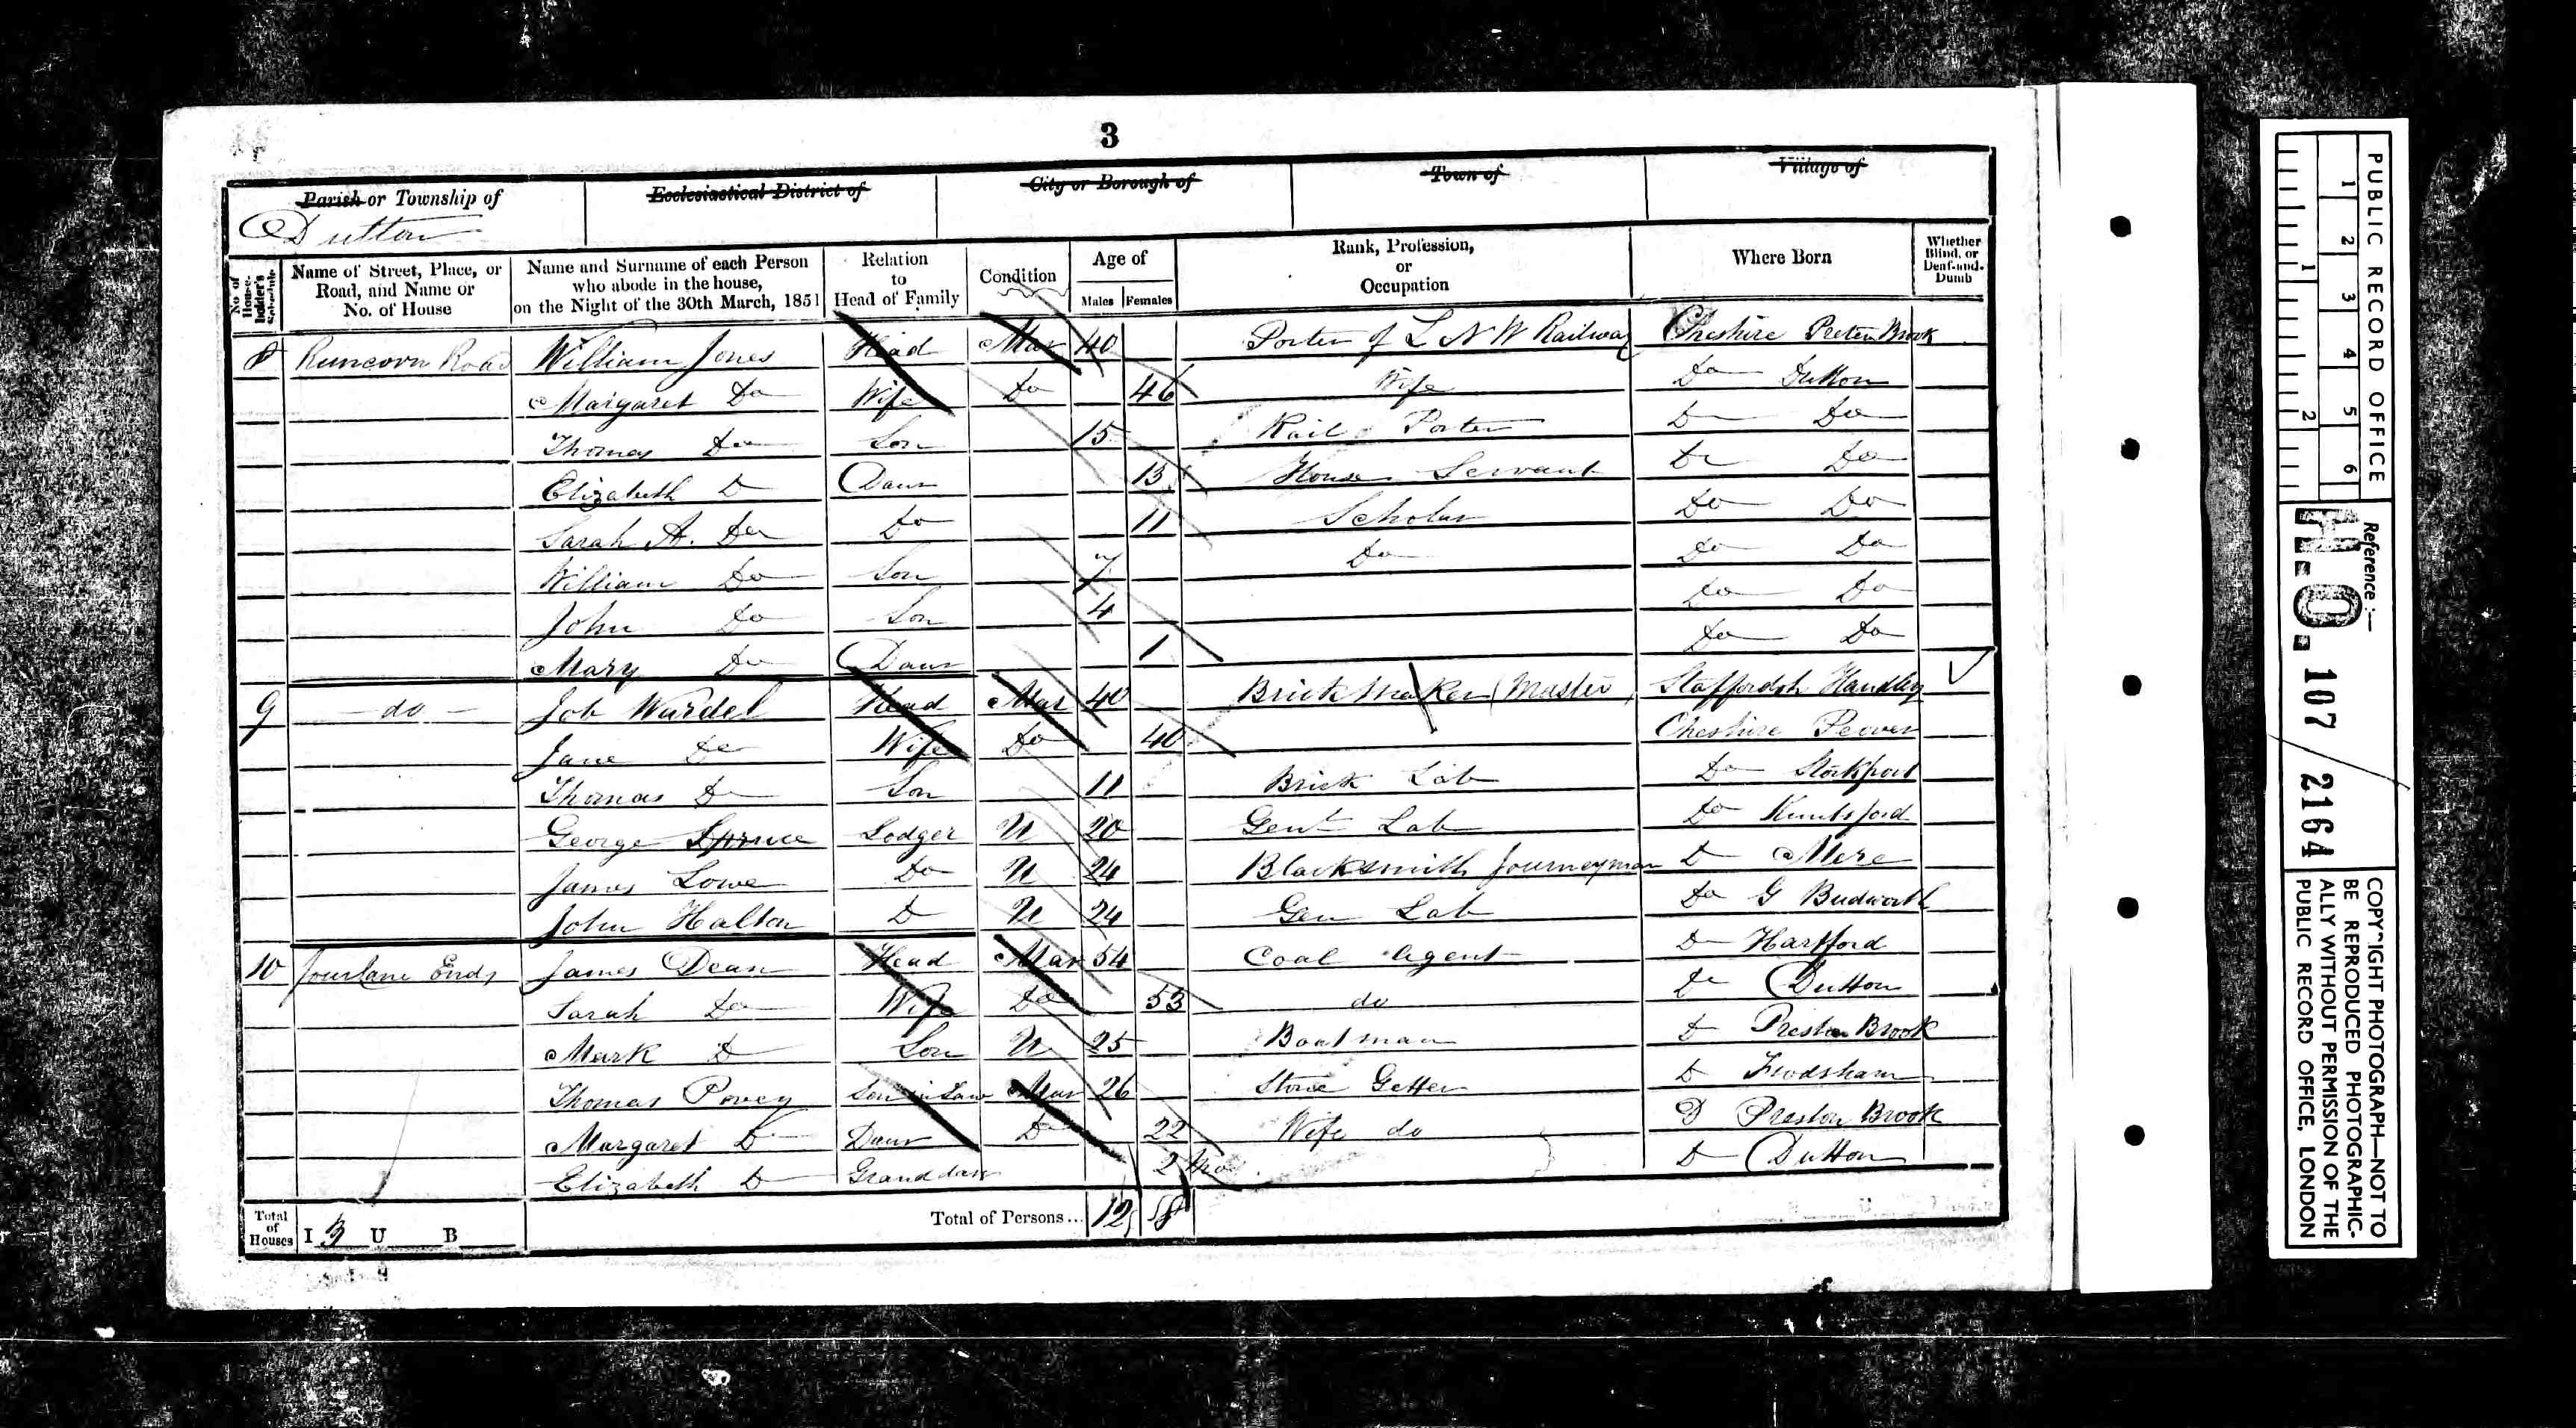 3
Parish or Township of
Ecclesiastical District of
City or Borough of
Town of
Village of
Dutton
No. of House-holder's Schedule
Name of Street, Place, or Road, and Name or No. of House
Name and Surname of each Person who abode in the house, on the Night of the 30th March, 1851
Relation to Head of Family
Condition
Age of
Males Females
Rank, Profession, or Occupation
Where Born
Whether Blind, or Deaf-and-Dumb
8 Runcorn Road William Jones Head Mar 40 Porter of L N W Railway Cheshire Brook
Margaret Do Wife Do 46 Wife Do Dutton
Thomas Do Son 15 Rail Porter D Do
Elizabeth D Daur 13 House Servant Do Do
Sarah A. Do Do 11 Scholar Do Do
William Do Son 7 Do Do Do
John Do Son 4 Do Do
Mary Do Daur 1 Do Do
9 do Job Wardel Head Mar 40 Brick Maker (Master) Staffordsh Handley
Jane Do Wife Do 40 Cheshire Peover
Thomas D Son 11 Brick Lab Do Stockport
George Spruce Lodger U 20 Genl Lab Do Knutsford
James Lowe Do U 24 Blacksmith Journeyman D Mere
John Halton D U 24 Gen Lab Do G Budworth
10 Fourlane Ends James Dean Head Mar 54 Coal Agent D Hartford
Sarah Do Wife Do 53 do D Dutton
Mark D Son U 25 Boatman D Preston Brook
Thomas Povey Son in Law Mar 26 Stone Getter D Frodsham
Margaret D Daur D 22 Wife do D Preston Brook
Elizabeth D Grand daur 2 Mo D Dutton
Total of Houses I 3 U B
Total of Persons... 12 8
PUBLIC RECORD OFFICE
1 2 3 4 5 6
1 2
Reference:-
H.O. 107 / 2164
COPYRIGHT PHOTOGRAPH—NOT TO
BE REPRODUCED PHOTOGRAPHIC-
ALLY WITHOUT PERMISSION OF THE
PUBLIC RECORD OFFICE, LONDON